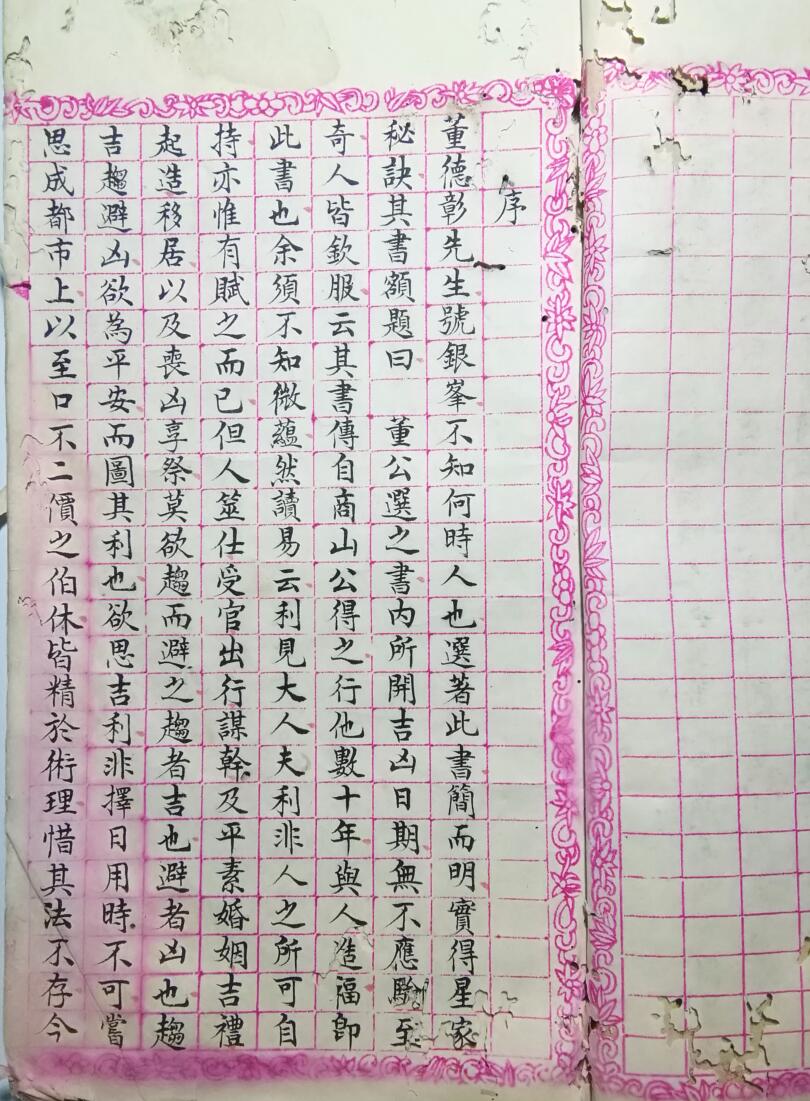 序
董德彰先生號銀峯不知何時人也選著此書簡而明實得星家
秘訣其書額題曰　董公選之書内所開吉凶日期無不應驗至
奇人皆欽服云其書傳自商山公得之行他數十年與人造福卽
此書也余須不知微蘊然讀易云利見大人夫利非人之所可自
持亦惟有賦之而已但人筮仕受官出行謀幹及平素婚姻吉禮
起造移居以及喪凶享祭莫欲趨而避之趨者吉也避者凶也趨
吉趨避凶欲為平安而圖其利也欲思吉利非擇日用時不可嘗
思成都市上以至口不二價之伯休皆精於術理惜其法不存今